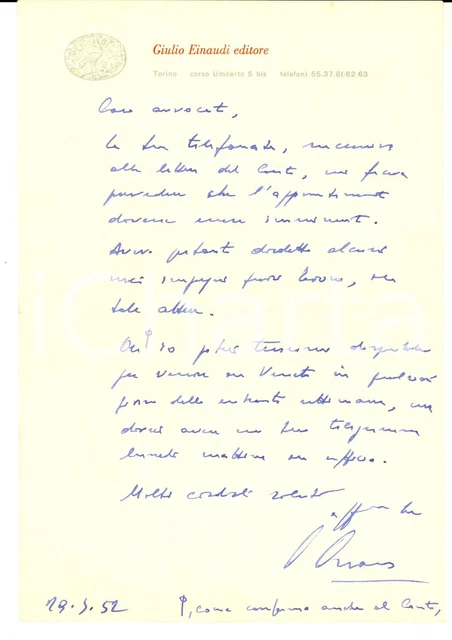 Giulio Einaudi editore
Torino corso Umberto 5 bis telefoni 55.37.61.62.63
Caro avvocato,
la sua telefonata, successiva
alla lettera del Conte, mi faceva
prevedere che l'appuntamento
dovesse essere imminente.
Avevo pertanto disdetto alcuni
miei impegni fuori Torino, in
tale attesa.
Ora φ io potrei tenermi disponibile
per venire in Veneto in qualsiasi
giorno della entrante settimana, ma
dovrei avere un suo telegramma
lunedì mattina in ufficio.
Molti cordiali saluti
Einaudi
19.3.52 φ, come confermo anche al Conte,
iCharta